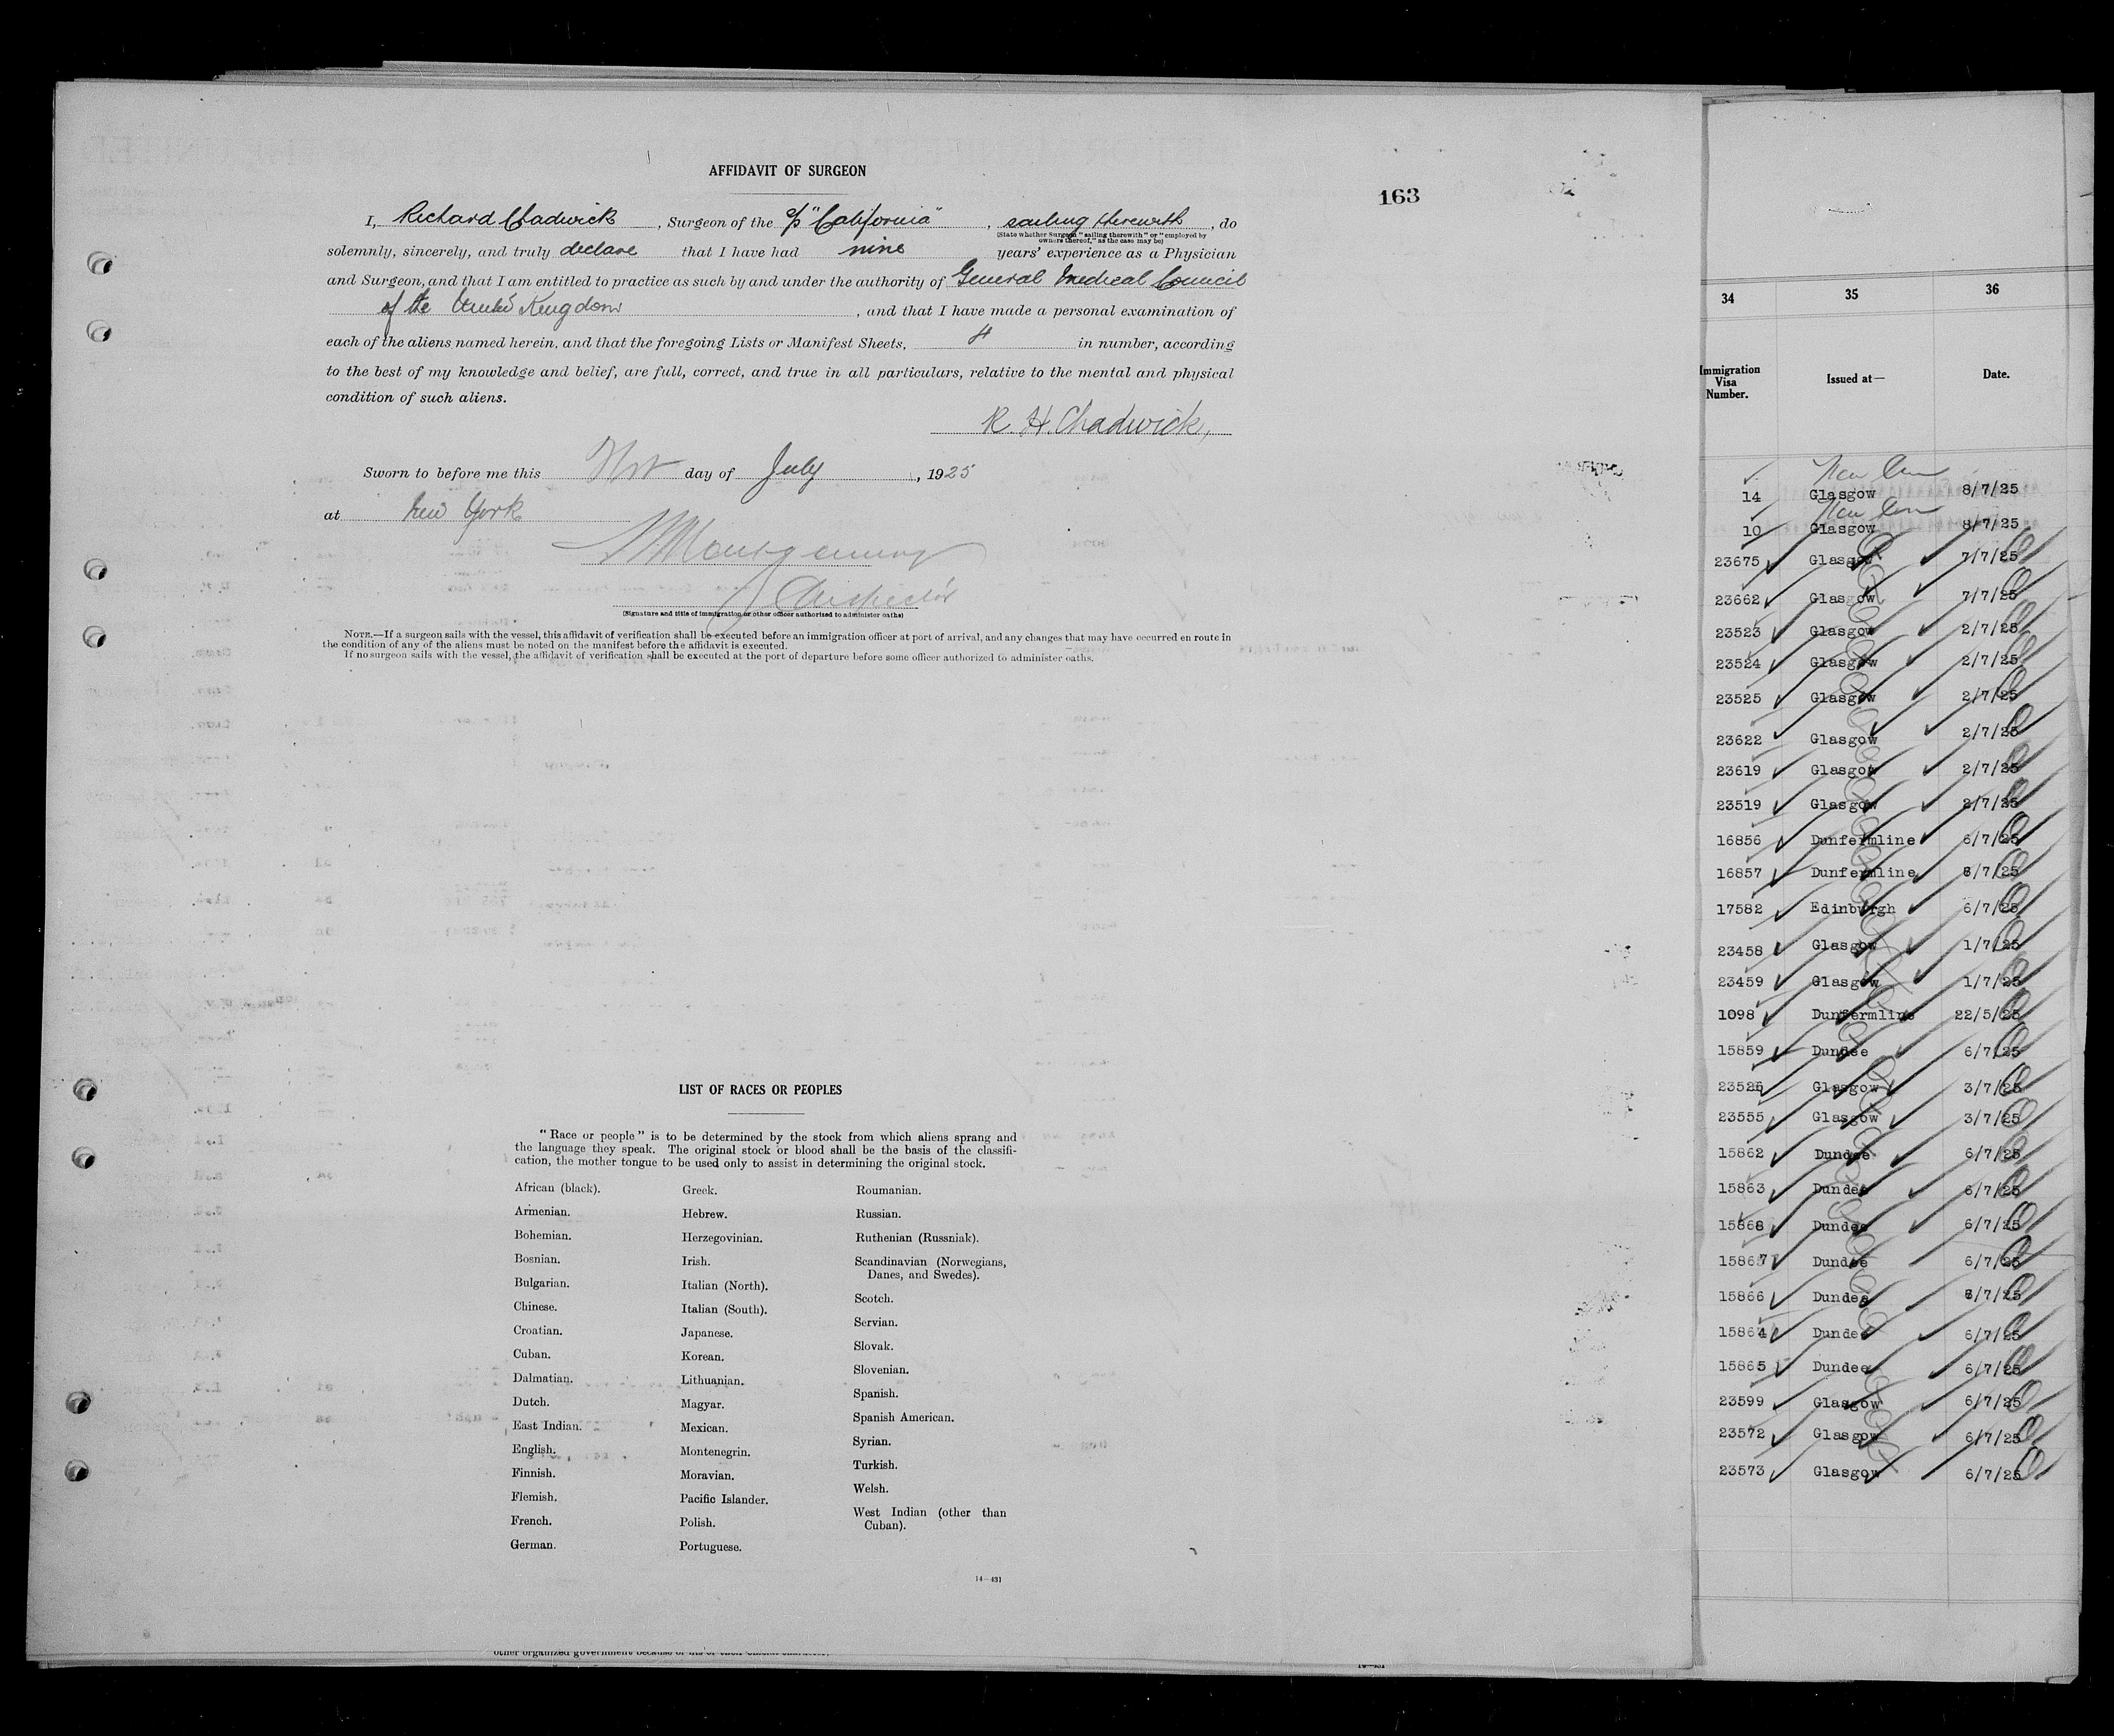 AFFIDAVIT OF SURGEON
163
I, Richard Chadwick, Surgeon of the S/S "California", sailing therewith, do
(State whether Surgeon "sailing therewith" or "employed by
owners thereof," as the case may be)
solemnly, sincerely, and truly declare that I have had nine years' experience as a Physician
and Surgeon, and that I am entitled to practice as such by and under the authority of General Medical Council
of the United Kingdom, and that I have made a personal examination of
each of the aliens named herein, and that the foregoing Lists or Manifest Sheets, 4 in number, according
to the best of my knowledge and belief, are full, correct, and true in all particulars, relative to the mental and physical
condition of such aliens.
R. H. Chadwick,
Sworn to before me this day of July, 1925
at New York
Montgomery
Inspector
(Signature and title of immigration or other officer authorized to administer oaths)
NOTE.—If a surgeon sails with the vessel, this affidavit of verification shall be executed before an immigration officer at port of arrival, and any changes that may have occurred en route in
the condition of any of the aliens must be noted on the manifest before the affidavit is executed.
If no surgeon sails with the vessel, the affidavit of verification shall be executed at the port of departure before some officer authorized to administer oaths.
LIST OF RACES OR PEOPLES
"Race or people" is to be determined by the stock from which aliens sprang and
the language they speak. The original stock or blood shall be the basis of the classifi-
cation, the mother tongue to be used only to assist in determining the original stock.
African (black).
Armenian.
Bohemian.
Bosnian.
Bulgarian.
Chinese.
Croatian.
Cuban.
Dalmatian.
Dutch.
East Indian.
English.
Finnish.
Flemish.
French.
German.
Greek.
Hebrew.
Herzegovinian.
Irish.
Italian (North).
Italian (South).
Japanese.
Korean.
Lithuanian.
Magyar.
Mexican.
Montenegrin.
Moravian.
Pacific Islander.
Polish.
Portuguese.
Roumanian.
Russian.
Ruthenian (Russniak).
Scandinavian (Norwegians,
Danes, and Swedes).
Scotch.
Servian.
Slovak.
Slovenian.
Spanish.
Spanish American.
Syrian.
Turkish.
Welsh.
West Indian (other than
Cuban).
14—431
other organized government because of his or their official character,
34 35 36
Immigration
Visa
Number.
Issued at—
Date.
14 Glasgow 8/7/25
10 Glasgow 8/7/25
23675 Glasgow 7/7/25
23662 Glasgow 7/7/25
23523 Glasgow 2/7/25
23524 Glasgow 2/7/25
23525 Glasgow 2/7/25
23622 Glasgow 2/7/25
23619 Glasgow 2/7/25
23519 Glasgow 2/7/25
16856 Dunfermline 6/7/25
16857 Dunfermline 6/7/25
17582 Edinburgh 6/7/25
23458 Glasgow 1/7/25
23459 Glasgow 1/7/25
1098 Dunfermline 22/5/25
15859 Dundee 6/7/25
23526 Glasgow 3/7/25
23555 Glasgow 3/7/25
15862 Dundee 6/7/25
15863 Dundee 6/7/25
15868 Dundee 6/7/25
15867 Dundee 6/7/25
15866 Dundee 6/7/25
15864 Dundee 6/7/25
15865 Dundee 6/7/25
23599 Glasgow 6/7/25
23572 Glasgow 6/7/25
23573 Glasgow 6/7/25